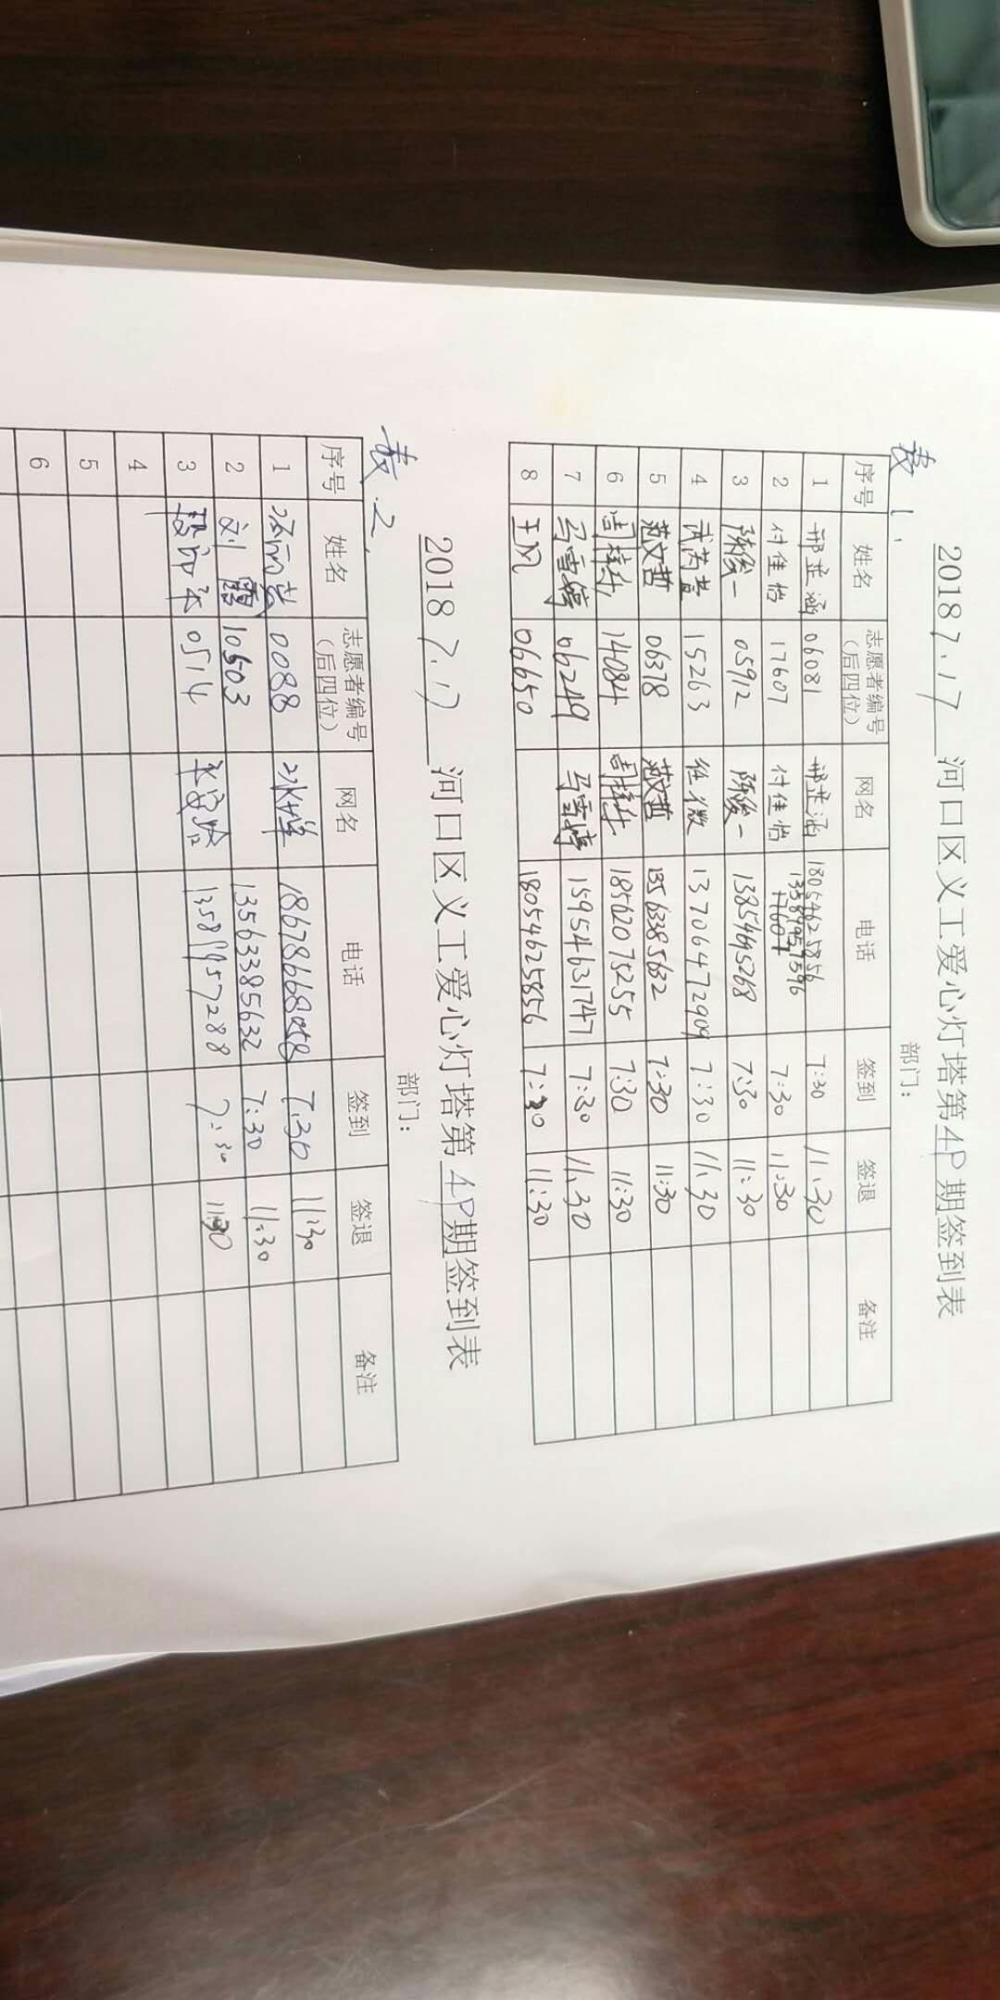 表1、
2018 7.17 河口区义工爱心灯塔第4P期签到表
部门：
序号 姓名 志愿者编号（后四位） 网名 电话 签到 签退 备注
1 邢芷涵 06081 邢芷涵 18054625856 7:30 11:30
2 付佳怡 17607 付佳怡 13589957596 17607 7:30 11:30
3 陈俊一 05912 陈俊一 13854695268 7:30 11:30
4 武芮萱 15263 13706472909 7:30 11:30
5 范文哲 06378 范文哲 13563385632 7:30 11:30
6 14084 18562075255 7:30 11:30
7 马雪婷 06249 马雪婷 15954631747 7:30 11:30
8 06650 18054625856 7:30 11:30
表2、
2018 7.17 河口区义工爱心灯塔第4P期签到表
部门：
序号 姓名 志愿者编号（后四位） 网名 电话 签到 签退 备注
1 0088 18678668058 7:30 11:30
2 刘霞 10503 13563385632 7:30 11:30
3 0514 13589957288 7:30 11:30
4
5
6